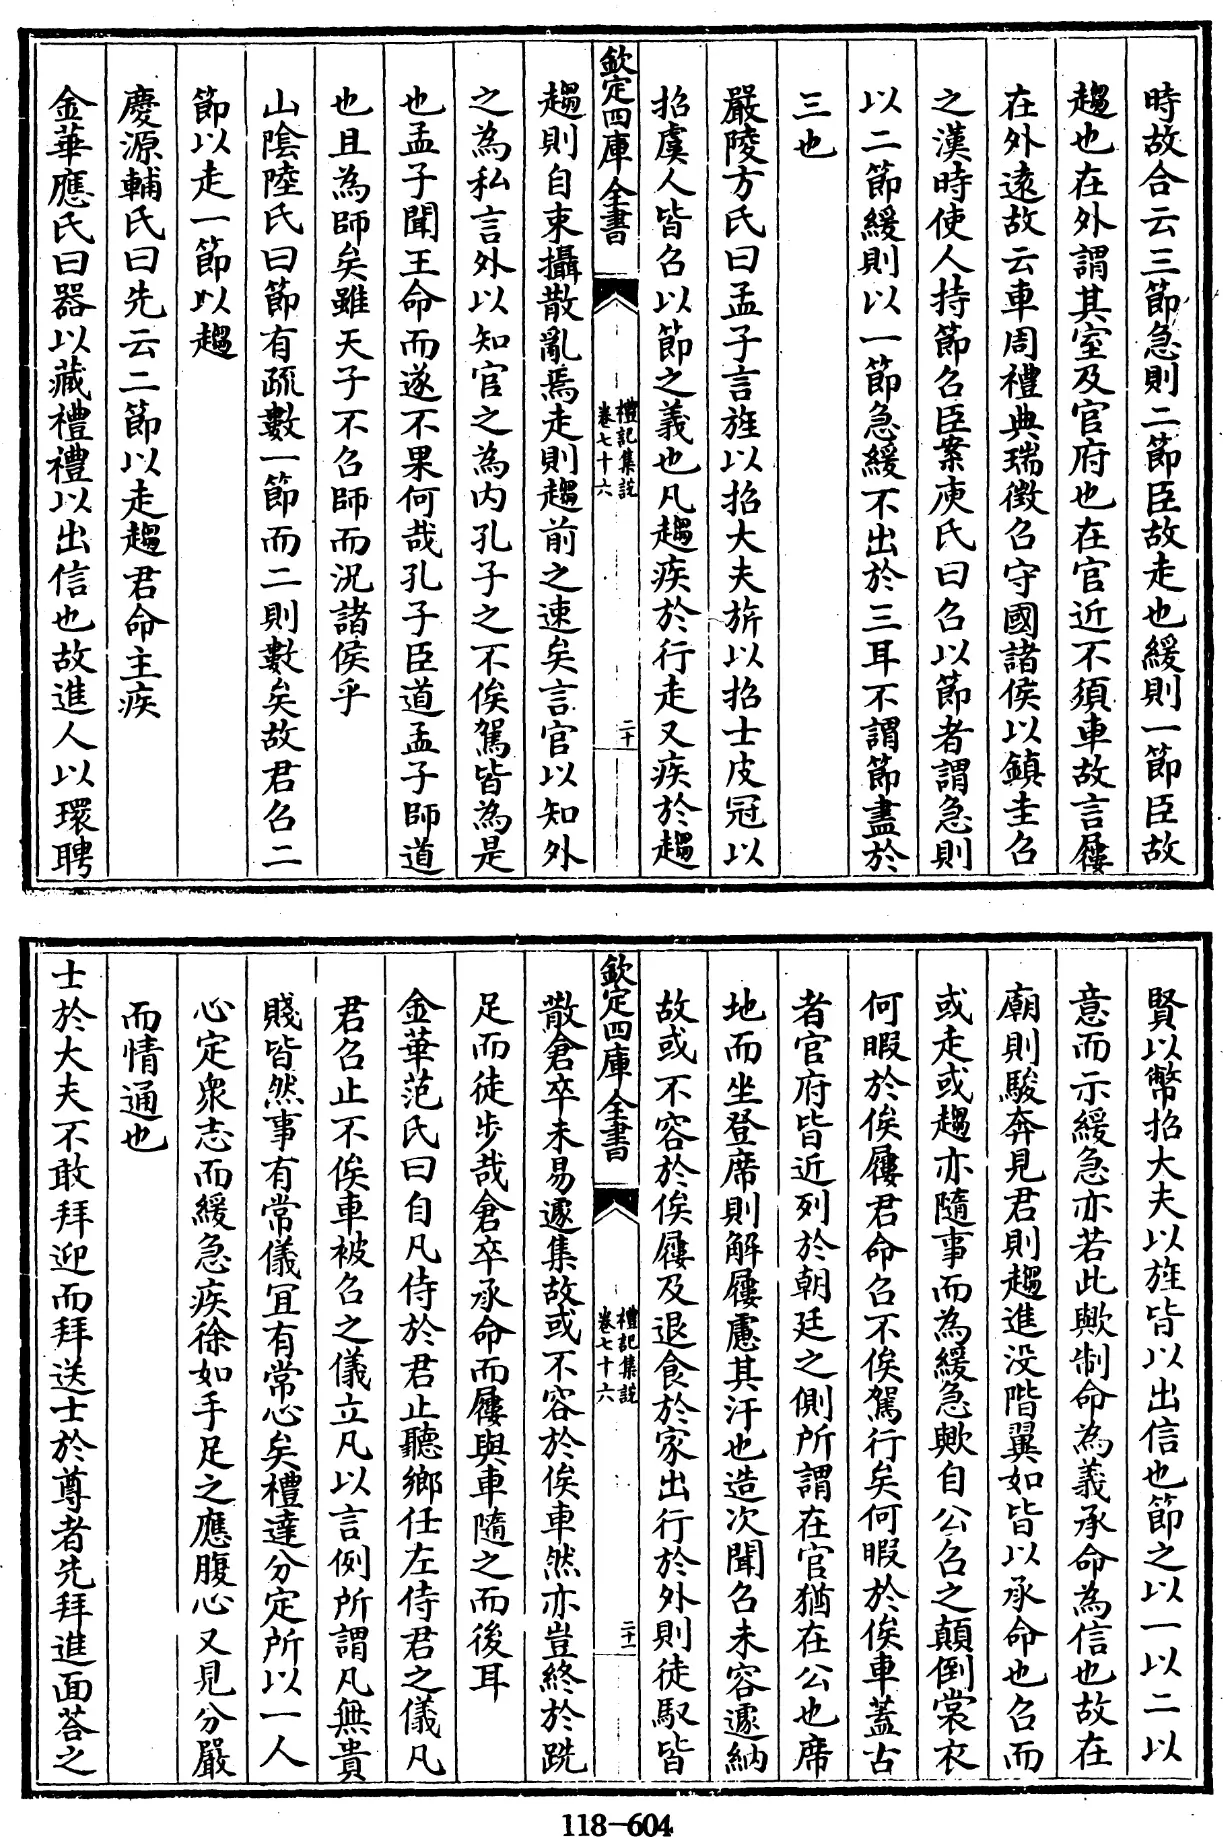 時故合云三節急則二節臣故走也緩則一節臣故
趨也在外謂其室及官府也在官近不須車故言屨
在外遠故云車周禮典瑞徵召守國諸侯以鎮圭召
之漢時使人持節召臣案庾氏曰召以節者謂急則
以二節緩則以一節急緩不出於三耳不謂節盡於
三也
嚴陵方氏曰孟子言旌以招大夫旂以招士皮冠以
招虞人皆召以節之義也凡趨疾於行走又疾於趨
欽定四庫全書
禮記集說
卷七十六
二十
趨則自束攝散亂焉走則趨前之速矣言官以知外
之為私言外以知官之為内孔子之不俟駕皆為是
也孟子聞王命而遂不果何哉孔子臣道孟子師道
也且為師矣雖天子不召師而況諸侯乎
山陰陸氏曰節有疏數一節而二則數矣故君召二
節以走一節以趨
慶源輔氏曰先云二節以走趨君命主疾
金華應氏曰器以藏禮禮以出信也故進人以環聘
賢以幣招大夫以旌皆以出信也節之以一以二以
意而示緩急亦若此歟制命為義承命為信也故在
廟則駿奔見君則趨進没階翼如皆以承命也召而
或走或趨亦隨事而為緩急歟自公召之顛倒裳衣
何暇於俟屨君命召不俟駕行矣何暇於俟車蓋古
者官府皆近列於朝廷之側所謂在官猶在公也席
地而坐登席則解屨慮其汙也造次聞召未容遽納
故或不容於俟屨及退食於家出行於外則徒馭皆
欽定四庫全書
禮記集說
卷七十六
二十一
散倉卒未易遽集故或不容於俟車然亦豈終於跣
足而徒步哉倉卒承命而屨與車隨之而後耳
金華范氏曰自凡侍於君止聽鄉任左侍君之儀凡
君召止不俟車被召之儀立凡以言例所謂凡無貴
賤皆然事有常儀宜有常心矣禮達分定所以一人
心定衆志而緩急疾徐如手足之應腹心又見分嚴
而情通也
士於大夫不敢拜迎而拜送士於尊者先拜進面荅之
118-604